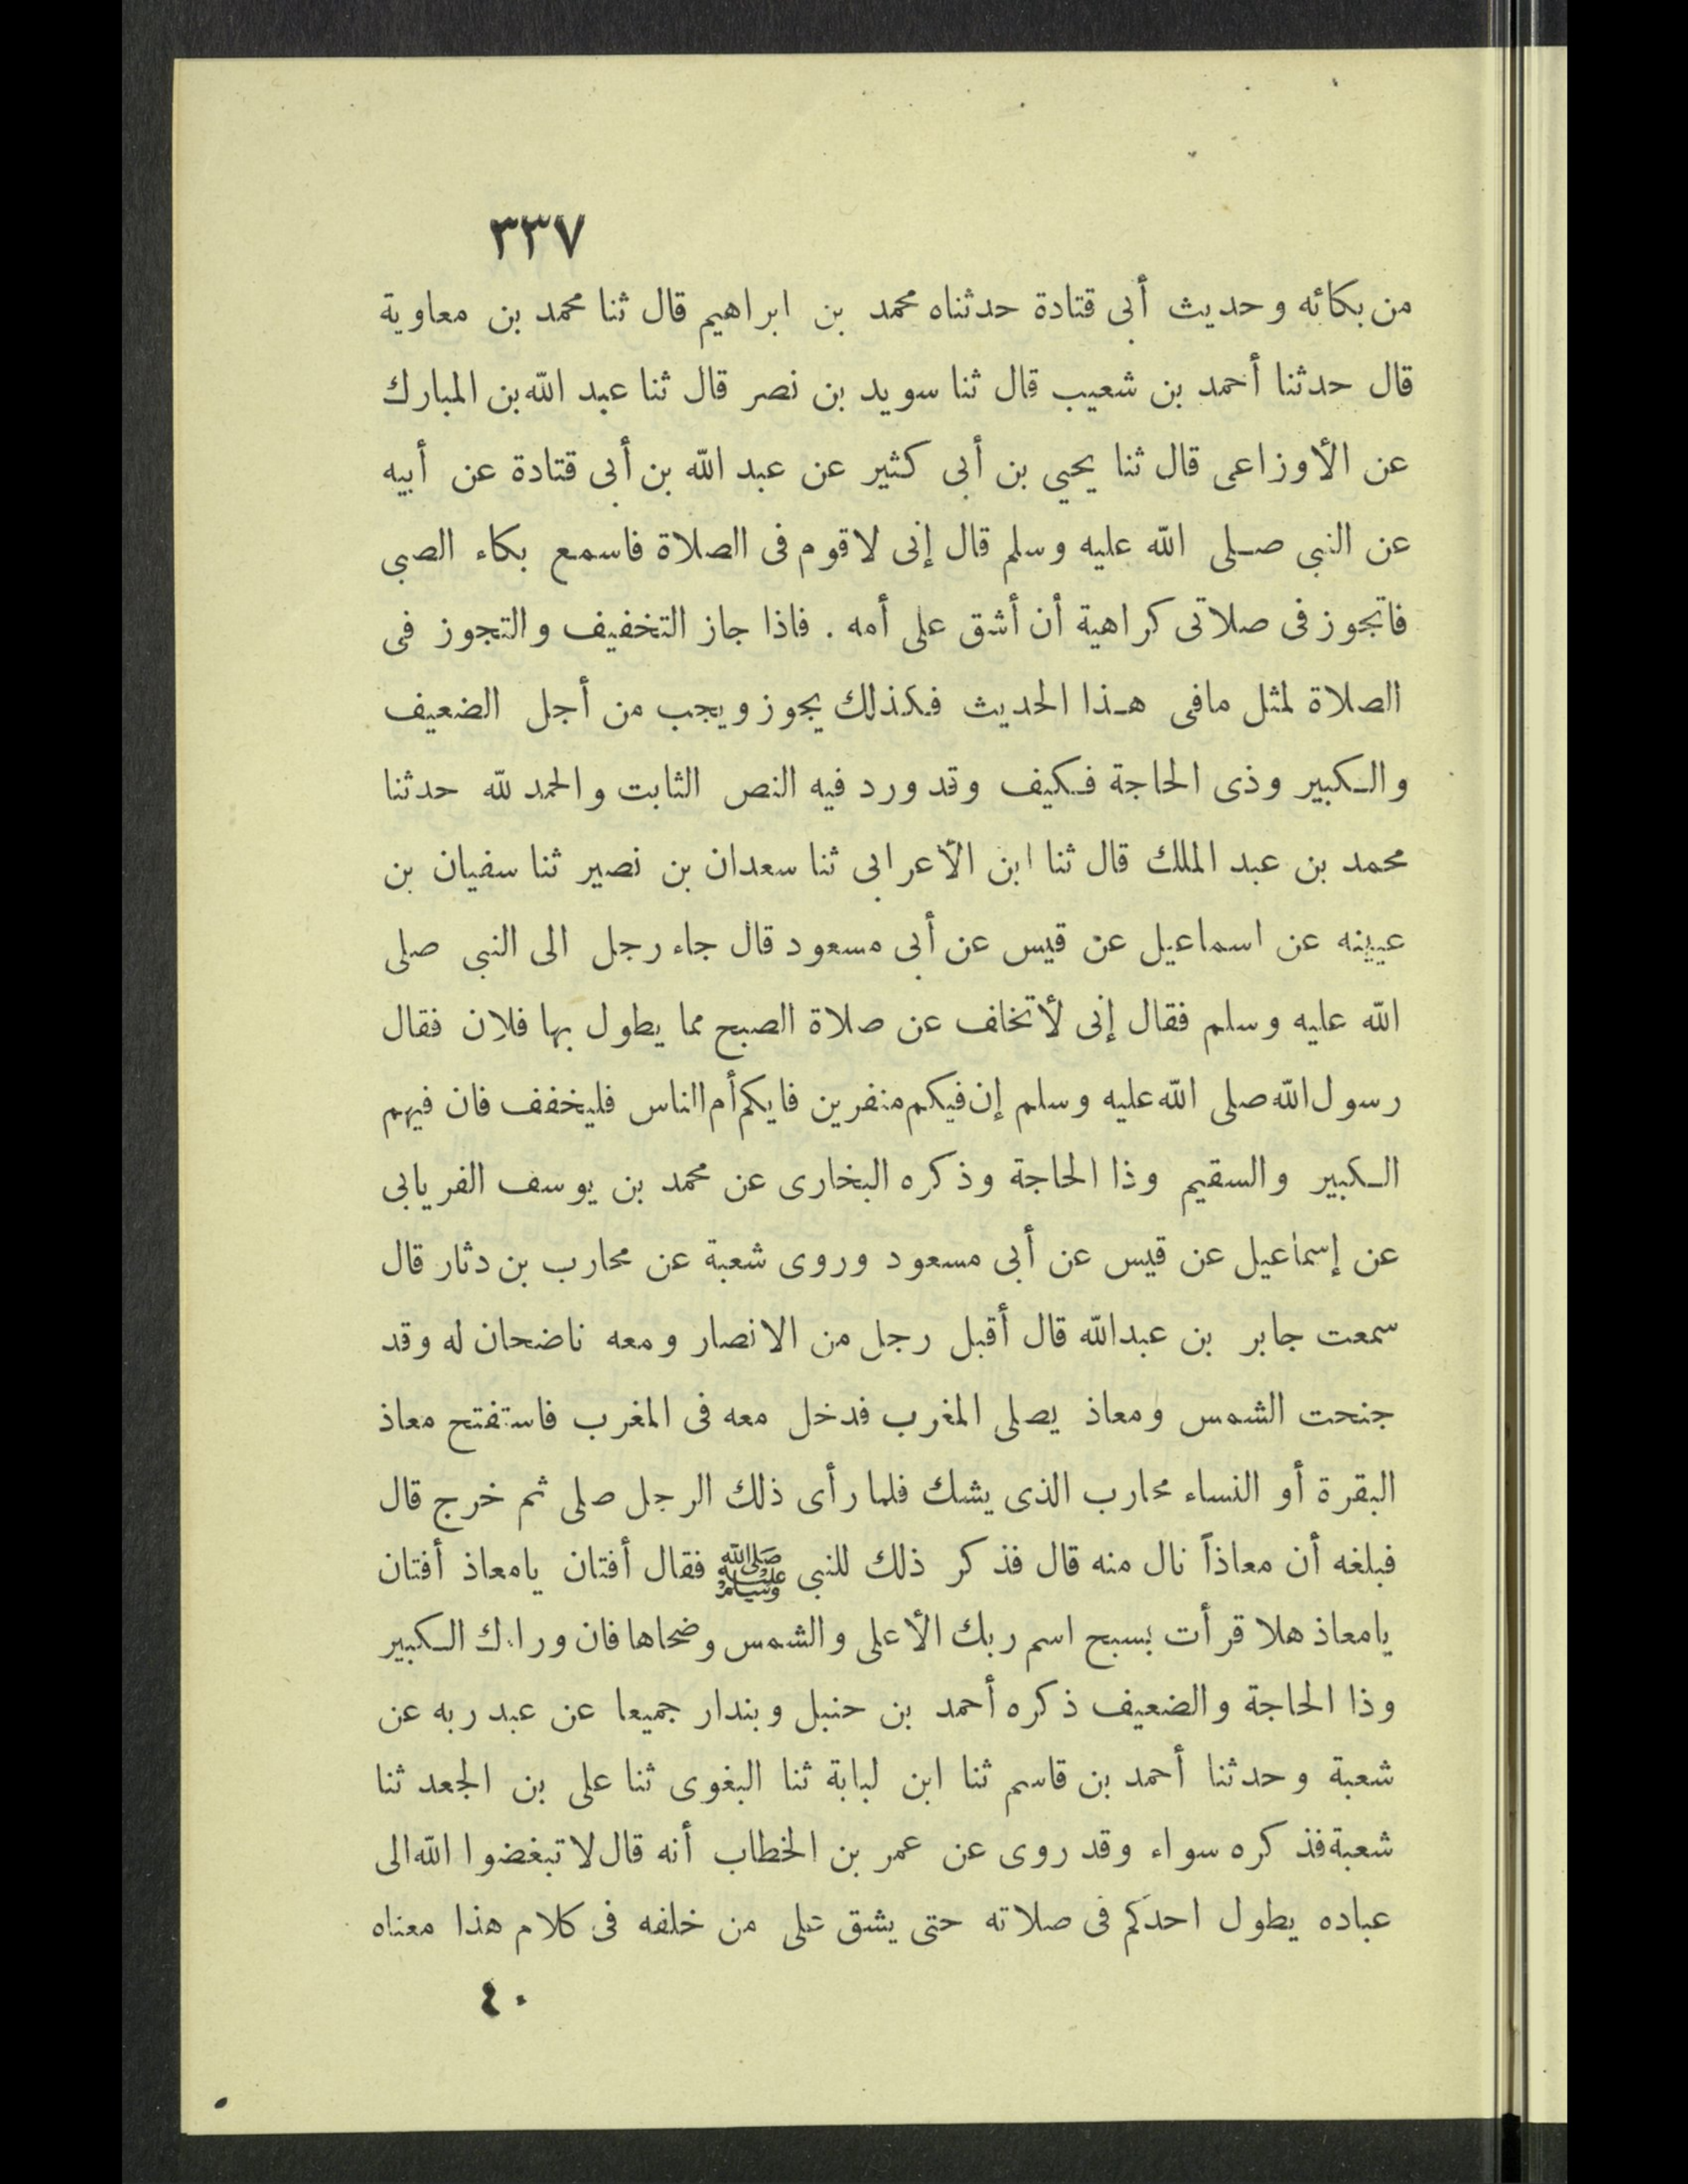 ٣٣٧
من بكائه وحديث أبى قتادة حدثناه محمد بن ابراهيم قال ثنا محمد بن معاوية
قال حدثنا أحمد بن شعيب قال ثنا سويد بن نصر قال ثنا عبد الله بن المبارك
عن الأوزاعى قال ثنا يحيى بن أبى كثير عن عبد الله بن أبى قتادة عن أبيه
عن النبى صلى الله عليه وسلم قال إنى لاقوم فى الصلاة فاسمع بكاء الصبى
فاتجوز فى صلاتى كراهية أن أشق على أمه . فاذا جاز التخفيف والتجوز فى
الصلاة لمثل مافى هذا الحديث فكذلك يجوز ويجب من أجل الضعيف
والكبير وذى الحاجة فكيف وقد ورد فيه النص الثابت والحمد لله حدثنا
محمد بن عبد الملك قال ثنا ابن الأعرابى ثنا سعدان بن نصير ثنا سفيان بن
عيينه عن اسماعيل عن قيس عن أبى مسعود قال جاء رجل الى النبى صلى
الله عليه وسلم فقال إنى لأتخاف عن صلاة الصبح مما يطول بها فلان فقال
رسول الله صلى الله عليه وسلم إن فيكم منفرين فايكم أم الناس فليخفف فان فيهم
الكبير والسقيم وذا الحاجة وذكره البخارى عن محمد بن يوسف الفريابى
عن إسماعيل عن قيس عن أبى مسعود وروى شعبة عن محارب بن دثار قال
سمعت جابر بن عبدالله قال أقبل رجل من الانصار ومعه ناضحان له وقد
جنحت الشمس ومعاذ يصلى المغرب فدخل معه فى المغرب فاستفتح معاذ
البقرة أو النساء محارب الذى يشك فلما رأى ذلك الرجل صلى ثم خرج قال
فبلغه أن معاذاً نال منه قال فذكر ذلك للنبى ﷺ فقال أفتان يامعاذ أفتان
يامعاذ هلا قرأت بسبح اسم ربك الأعلى والشمس وضحاها فان وراءك الكبير
وذا الحاجة والضعيف ذكره أحمد بن حنبل وبندار جميعا عن عبد ربه عن
شعبة وحدثنا أحمد بن قاسم ثنا ابن لبابة ثنا البغوى ثنا على بن الجعد ثنا
شعبة فذكره سواء وقد روى عن عمر بن الخطاب أنه قال لا تبغضوا الله الى
عباده يطول احدكم فى صلاته حتى يشق على من خلفه فى كلام هذا معناه
٤٠